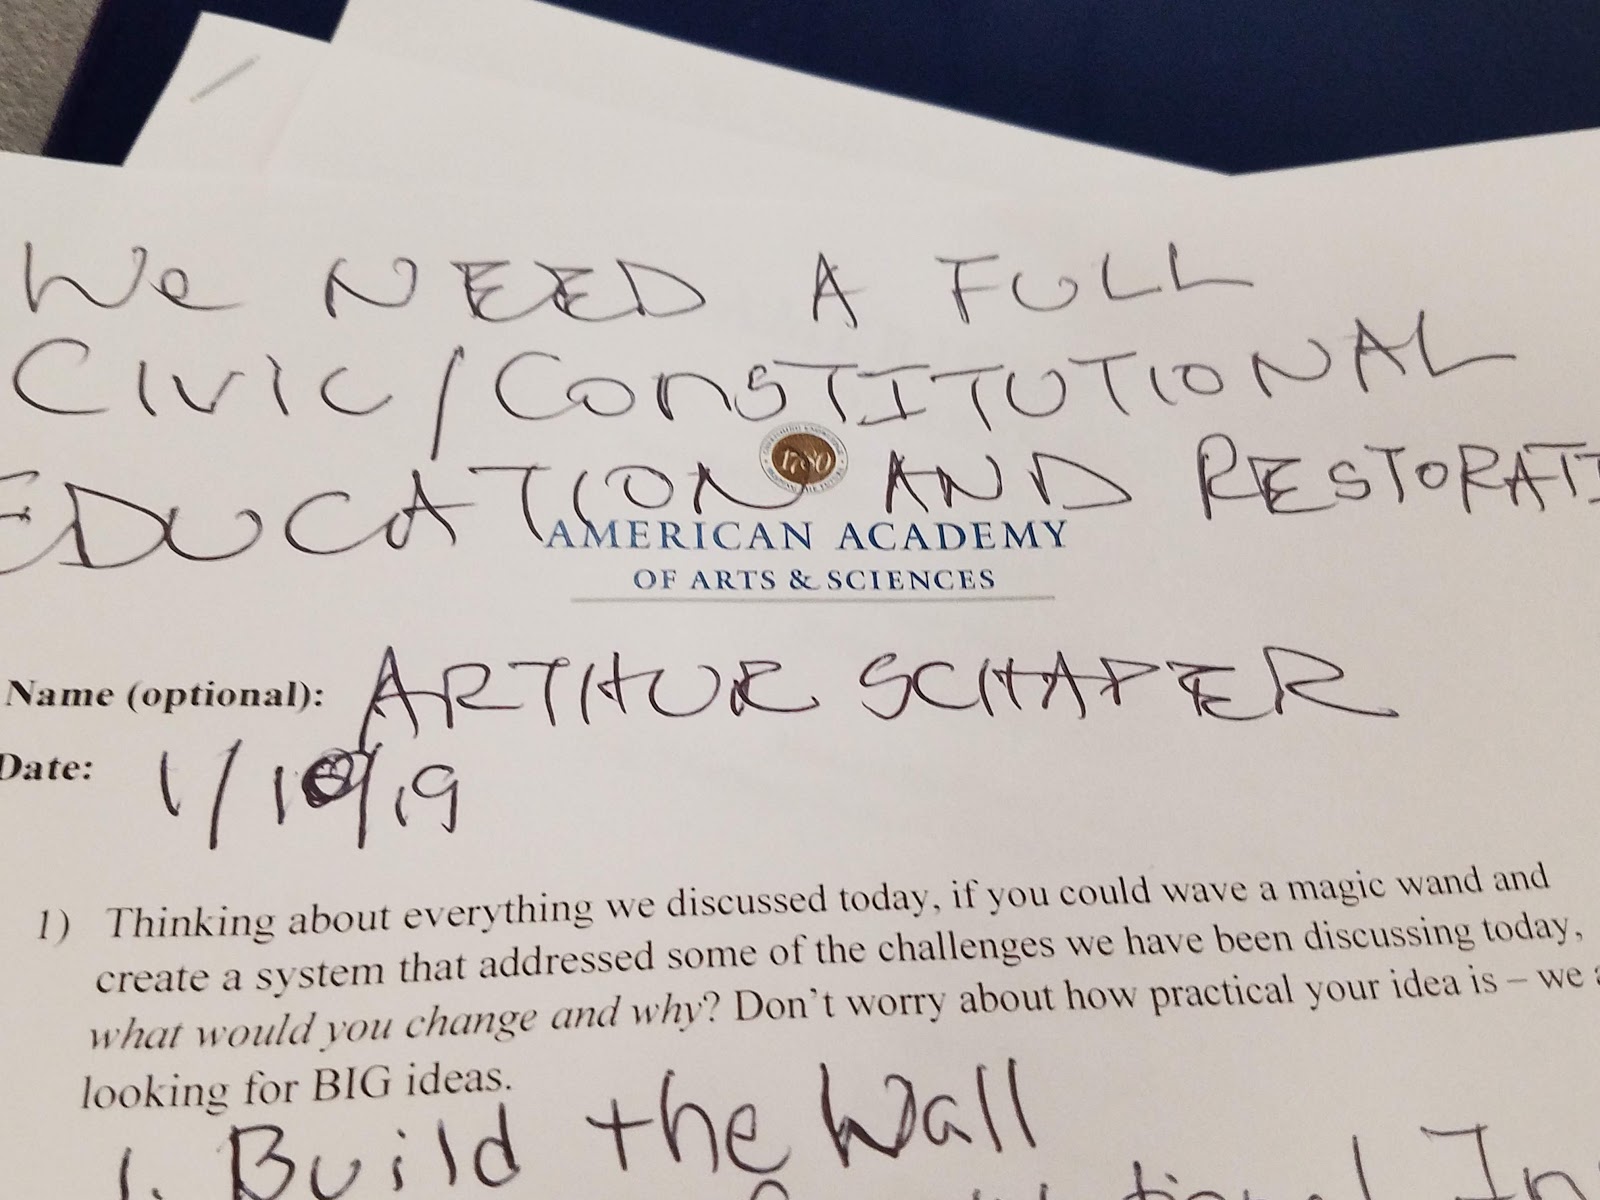 We NEED A FULL
CIVIC/CONSTITUTIONAL
EDUCATION AND RESTORATI
1780
AMERICAN ACADEMY
OF ARTS & SCIENCES
Name (optional): ARTHUR SCHAPER
Date: 1/10/19
1) Thinking about everything we discussed today, if you could wave a magic wand and
create a system that addressed some of the challenges we have been discussing today,
what would you change and why? Don't worry about how practical your idea is – we a
looking for BIG ideas.
1. Build the Wall